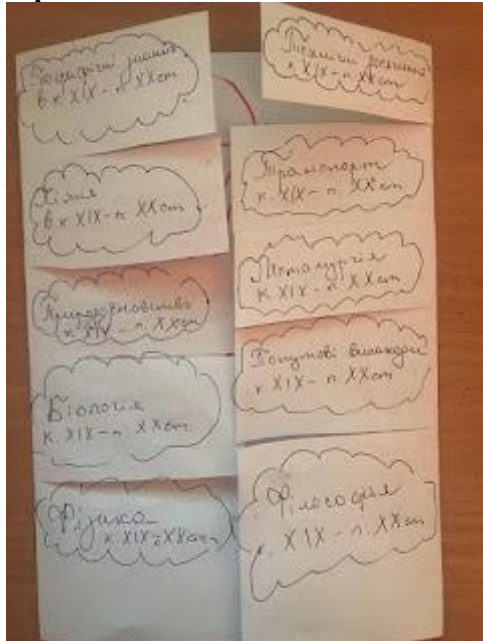 Географічні знання
в к. XIX - п. XX ст
Хімія
в к XIX - п. XX ст.
Природознавство
к. XIX - п. XX ст
Біологія
к. XIX - п. XX ст
Фізика
к. XIX - XX ст
Технічні
к XIX - п. XX ст
Транспорт
к. XIX - п. XX ст
Металургія
к. XIX - п. XX ст
Побутові винаходи
к. XIX - п. XX ст
Філософія
к. XIX - п. XX ст